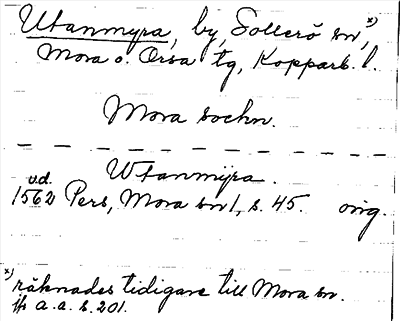 Utanmyra, by, Sollerö sn, x)
Mora o. Orsa tg, Kopparb. l.
Mora sochn.
Wtanmÿra.
v.d.
1562 Pers, Mora sn 1, s. 45. orig.
x) räknades tidigare till Mora sn.
jfr a.a. s. 201.